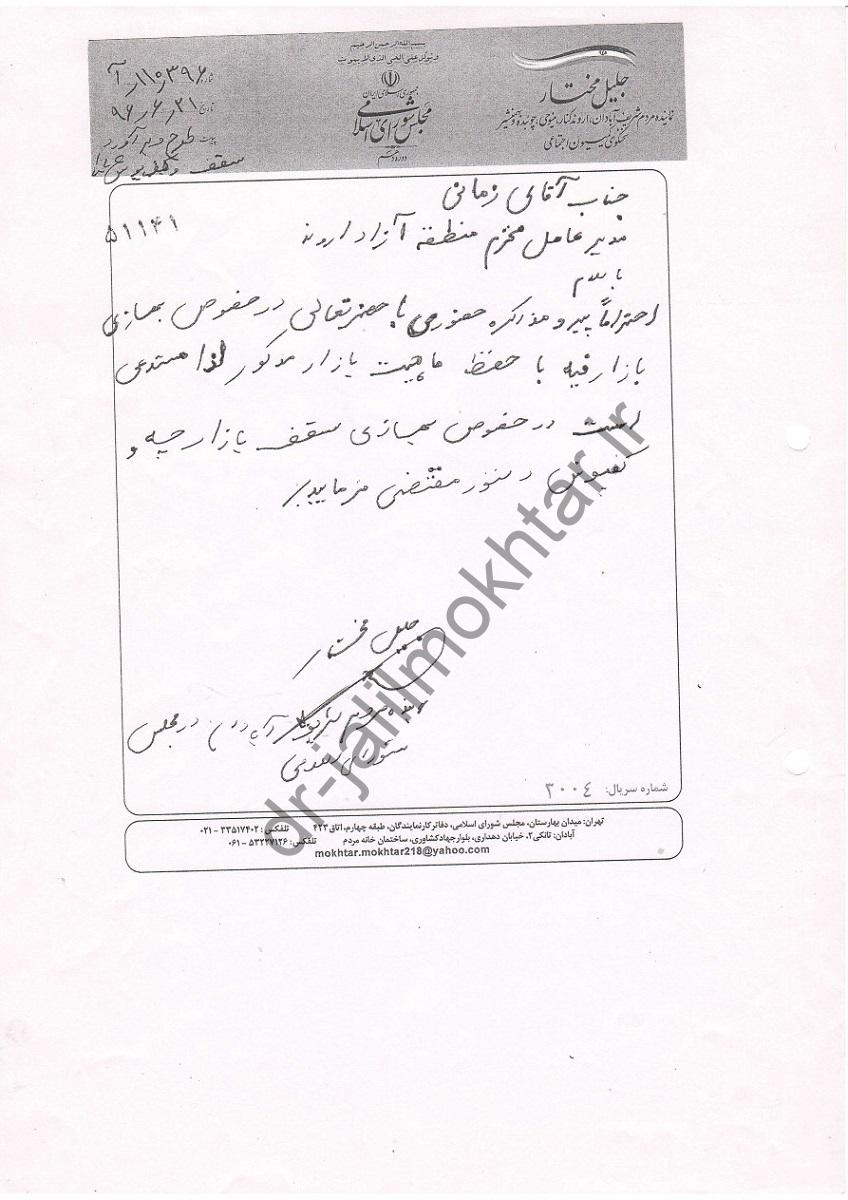 بسم الله الرحمن الرحیم
و توکل علی الحی الذی لا یموت
جمهوری اسلامی ایران
مجلس شورای اسلامی
دوره دهم
جلیل مختار
نماینده مردم شریف آبادان، اروندکنار، مینوحی، چوئبده و بهمنشیر
سخنگوی کمیسیون اجتماعی
شماره ۱۱۰۵۳۹۶ر آ
تاریخ ۹۶٫۶٫۲۱
پیوست طرح و برآورد
سقف و
۵۱۱۴۱
جناب آقای زمانی
مدیر عامل محترم منطقه آزاد اروند
با سلام
احتراماً پیرو مذاکره حضوری با حضرتعالی در خصوص بهسازی
بازار فیه با حفظ ماهیت بازار مذکور لذا مستدعی
است در خصوص بهسازی سقف بازارچه و
کفپوش دستور مقتضی فرمایید.
جلیل مختار
نماینده مردم شریف آبادان در مجلس
شورای اسلامی
شماره سریال: ۲۰۰۴
تهران: میدان بهارستان، مجلس شورای اسلامی، دفاتر کار نمایندگان، طبقه چهارم، اتاق ۴۲۳ تلفکس: ۳۳۵۱۷۴۰۲ - ۰۲۱
آبادان: تانکی۲، خیابان دهداری، بلوار جهاد کشاورزی، ساختمان خانه مردم تلفکس: ۵۳۲۲۷۱۲۶ - ۰۶۱
mokhtar.mokhtar218@yahoo.com
dr-jalilmokhtar.ir